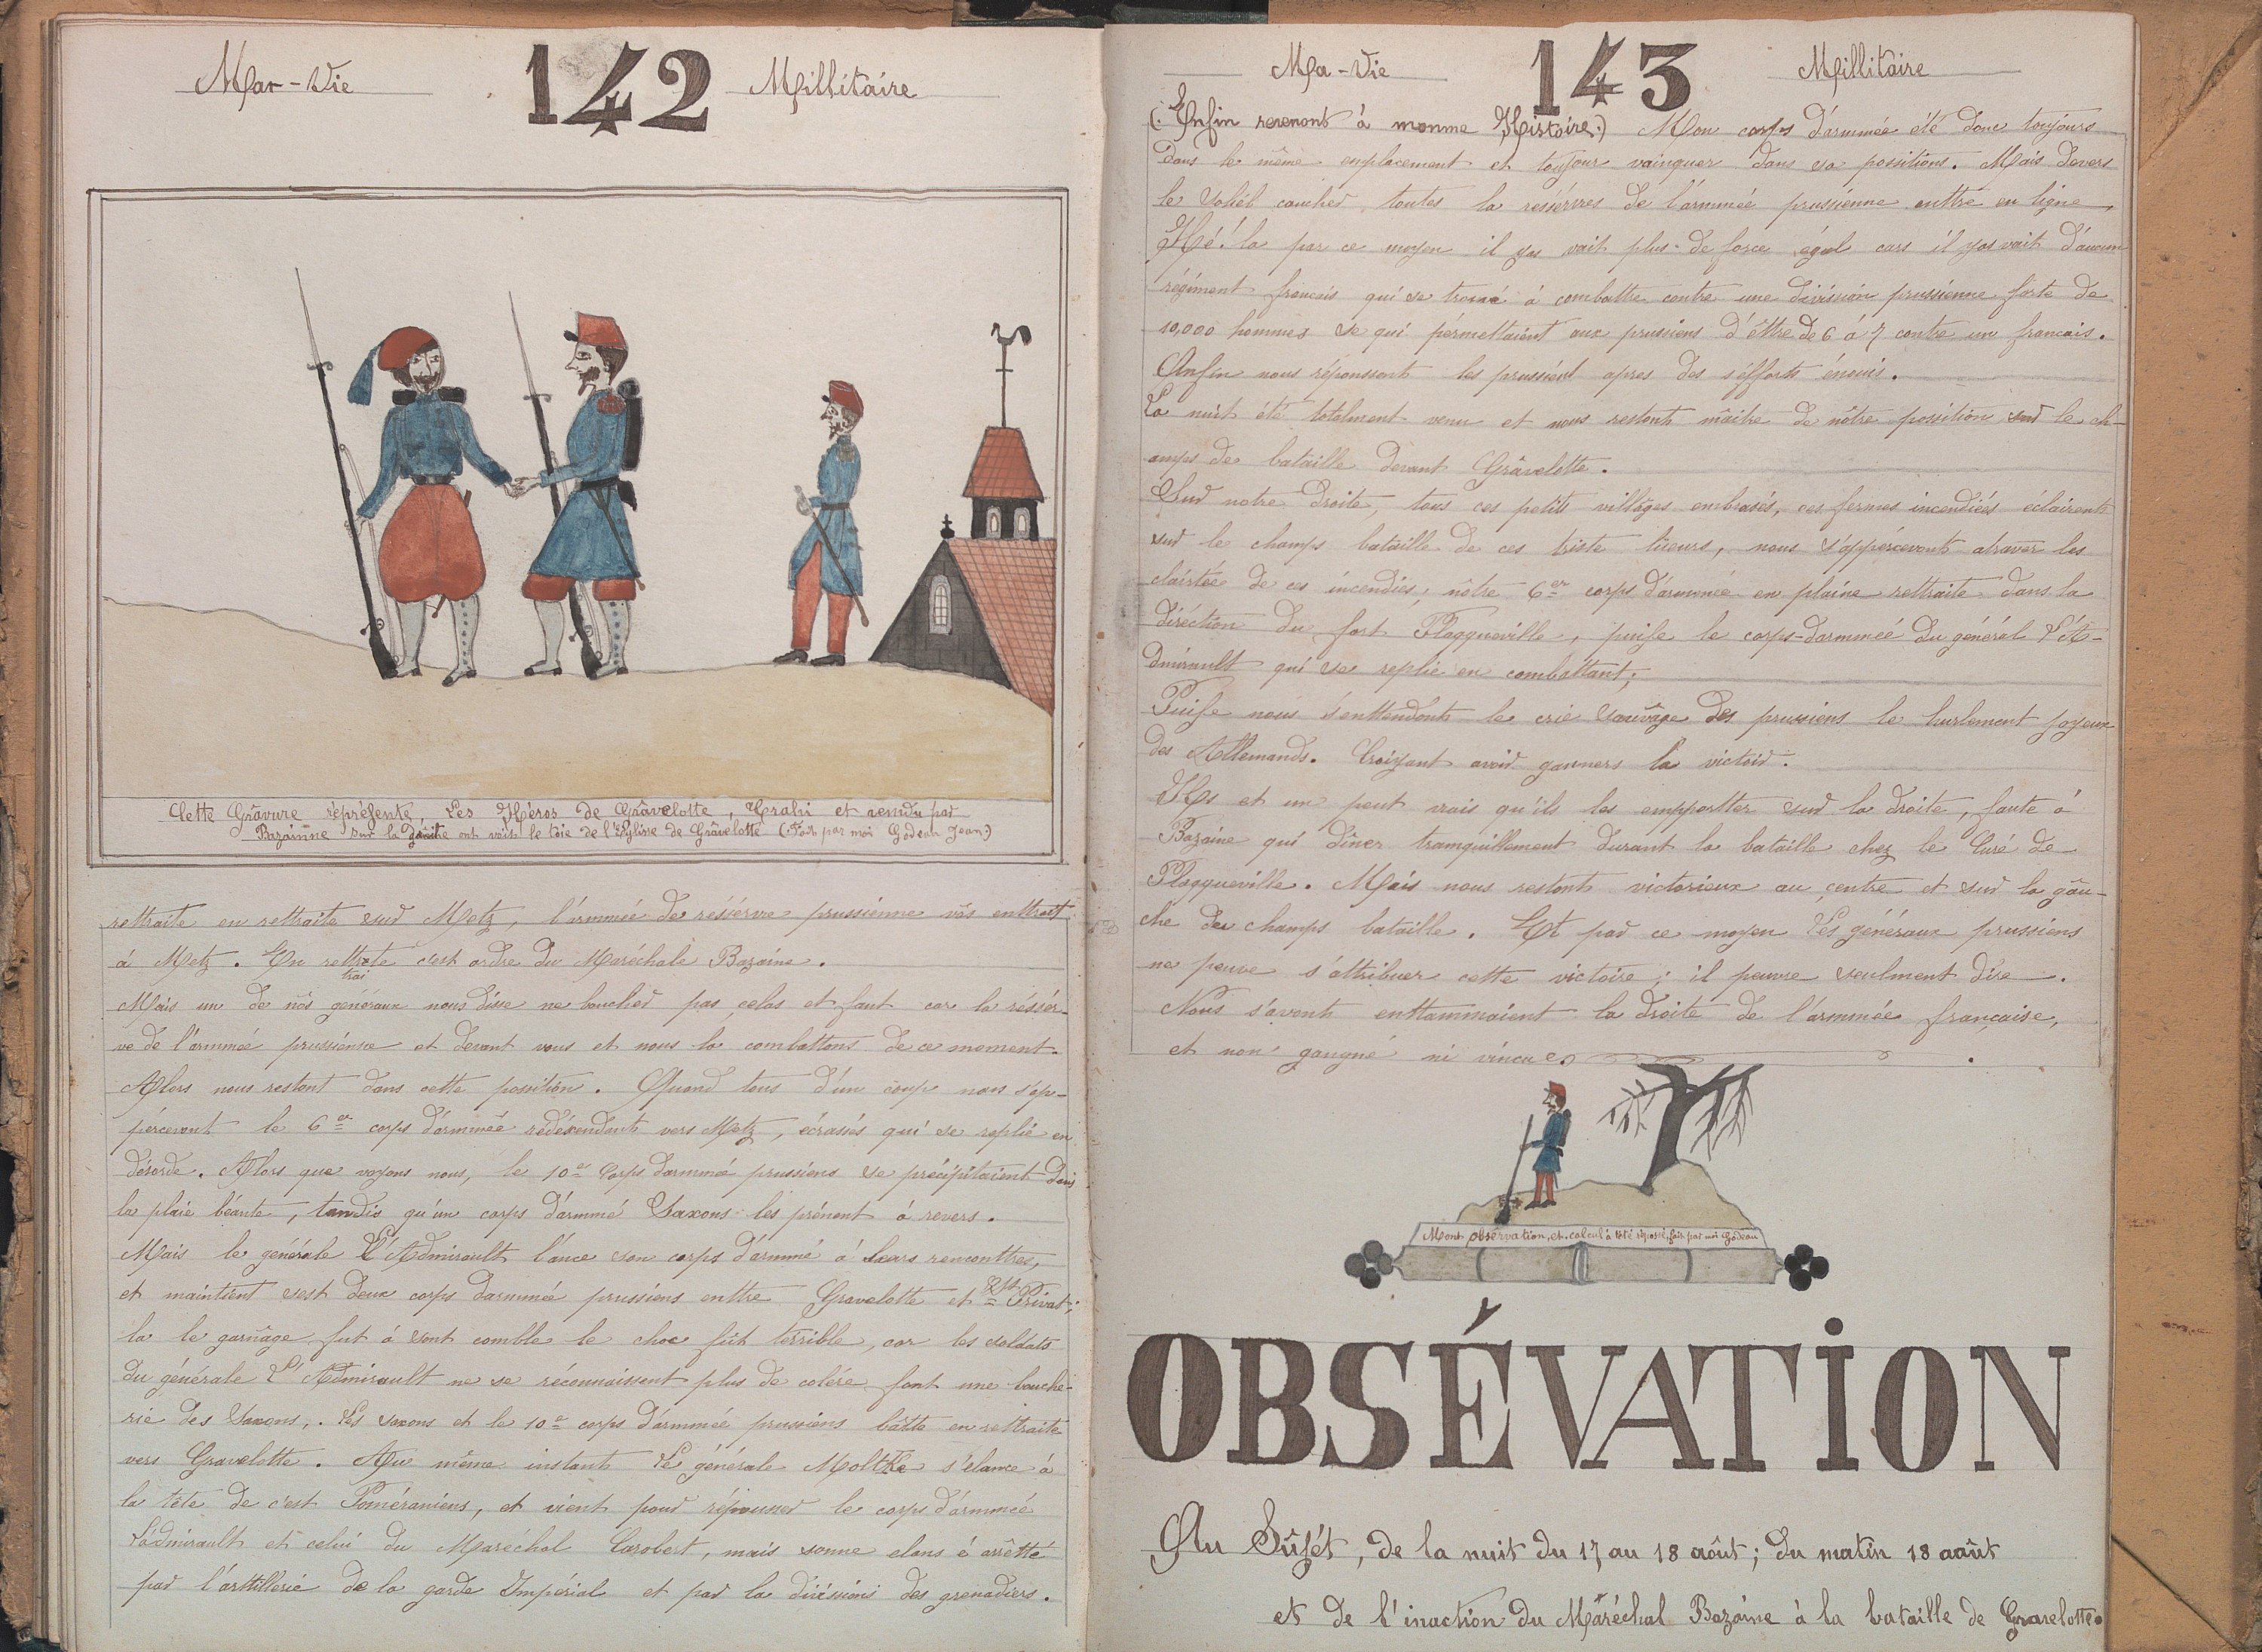 Mar-Vie 142 Millitaire
Cette Grâvure répréfente, Les Héros de Grâvelotte, Trahi et vendu par
Bazainne sur la droite ont voit le toie de l'Eglise de Grâvelotte (Fait par moi Godeau Jean.)
rettraite en rettraite sud Metz, l'armmée de ressérve prussiénne vâs enttrait
à Metz. En rettrate c'est ordre du Maréchale Bazaine.
trai
Mais un de nôs genéraux nous disse ne boucher pas celas et faut car la réssér-
ve de l'armmée prussiénne et devant vous et nous la combattons de ce moment.
Alors nous restont dans cette possition. Quand tous d'un coup nous s'ape-
pércevont le 6er corps d'armmée rédéxendants vers Metz, écrassés qui se replié en
désorde. Alors que voyons nous, le 10e Corps d'armmé prussiens se précipitaient dans
la plaie béante, tandis qu'un corps d'armmé Saxons les prénent à revers.
Mais le genérale L'Admirault l'ance son corps d'armmé à leurs rencontres,
et maintient sest deux corps d'armmée prussiens enttre Gravelotte et St Privat;
la le garnâge fut à sont comble le choc fût terrible, car les soldats
du générale L'Admirault ne se réconnaissent plus de colére font une bouche-
rie des Saxons,. Les saxons et le 10e corps d'armmée prussiens batte en rettraite
vers Gravelotte. Au même instant Le générale Moltke s'élance à
la tête de c'est Poméraniens, et vient pour répousser le corps d'armmée
L'admirault et celui du Maréchal Carobert, mais sonne elans é arrêtté
par l'arttillerie de la garde Impérial et par la divission des grenadiers.
Ma-Vie 143 Millitaire
(. Enfin revenont à monme Histoire.) Mon corps d'armmée été donc toujours
dans le même emplacement et toujour vainquer dans sa possitions. Mais devers
le soliél coucher toutes la ressérves de l'armmée prussienne enttre en ligne,
Hé! la par ce moyen il yas vait plus de force égal cars il yas vait d'aucun
régiment francais qui se trouvé à combattre contre une division prussienne forte de
10,000 hommes se qui pérmettaient aux prussiens d'êttre de 6 à 7 contre un francais.
Anfin nous répoussont les prussient apres des s'éfforts énouis.
La nuit été totalment venu et nous restont mâitre de nôtre possition sud le ch-
amps de bataille devant Grâvelotte.
Sud notre droite, tous ces petits villâges embrasés, ces fermes incendiées éclairent
sud le champs bataille de ces triste lueurs, nous s'appércevont atraver les
clairtée de ces incendies, nôtre 6er corps d'armmée en plaine rettraite dans la
diréction du fort Plappeville, puife le corps-darmmée du général L'A-
dmirault qui se replie en combattant;
Puife nous s'enttendont le crie sauvâge des prussiens le hurlement joyeux
des Allemands. Croiyant avoir ganners la victoir.
Ils et un peut vrais qu'ils les empportter sud la droite, faute à
Bazaine qui dîner tranquillement durant la bataille chez le Curé de
Plappeville. Mais nous restont victorieux au centre et sud la gâu-
che du champs bataille. Et par ce moyen Les généraux prussiens
ne peuve s'attribuer cette victoire; il peuvre seulment dire.
Nous s'avont enttammaient la droite de l'armmée française,
et non gangné ni vincue.
Mont obsérvation, et calcul à tété reposé, fait par moi Godeau
OBSÉVATION
Au Sûjét, de la nuit du 17 au 18 août; du matin 18 août
et de l'inaction du Maréchal Bazaine à la bataille de Gravelotte.